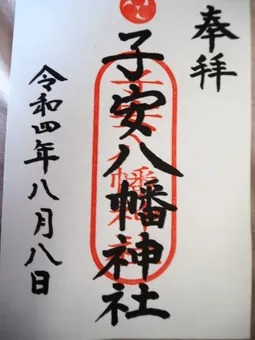 奉拝
子安八幡神社
令和四年八月八日